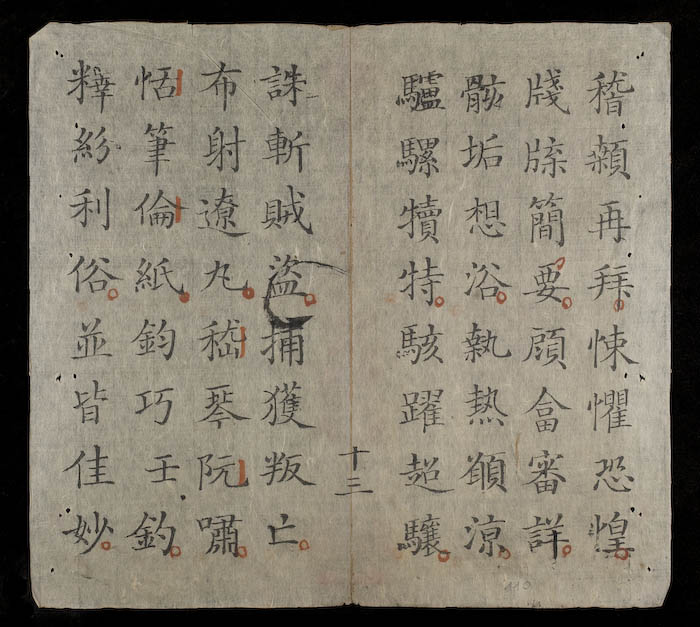 稽顙再拜悚懼恐惶
牋牒簡要頋畣審詳
骸垢想浴執熱願涼
驢騾犢特駭躍超驤
十三
誅斬賊盜捕獲叛亡
布射遼丸嵇琴阮嘯
恬筆倫紙鈞巧壬釣
釋紛利俗並皆佳妙